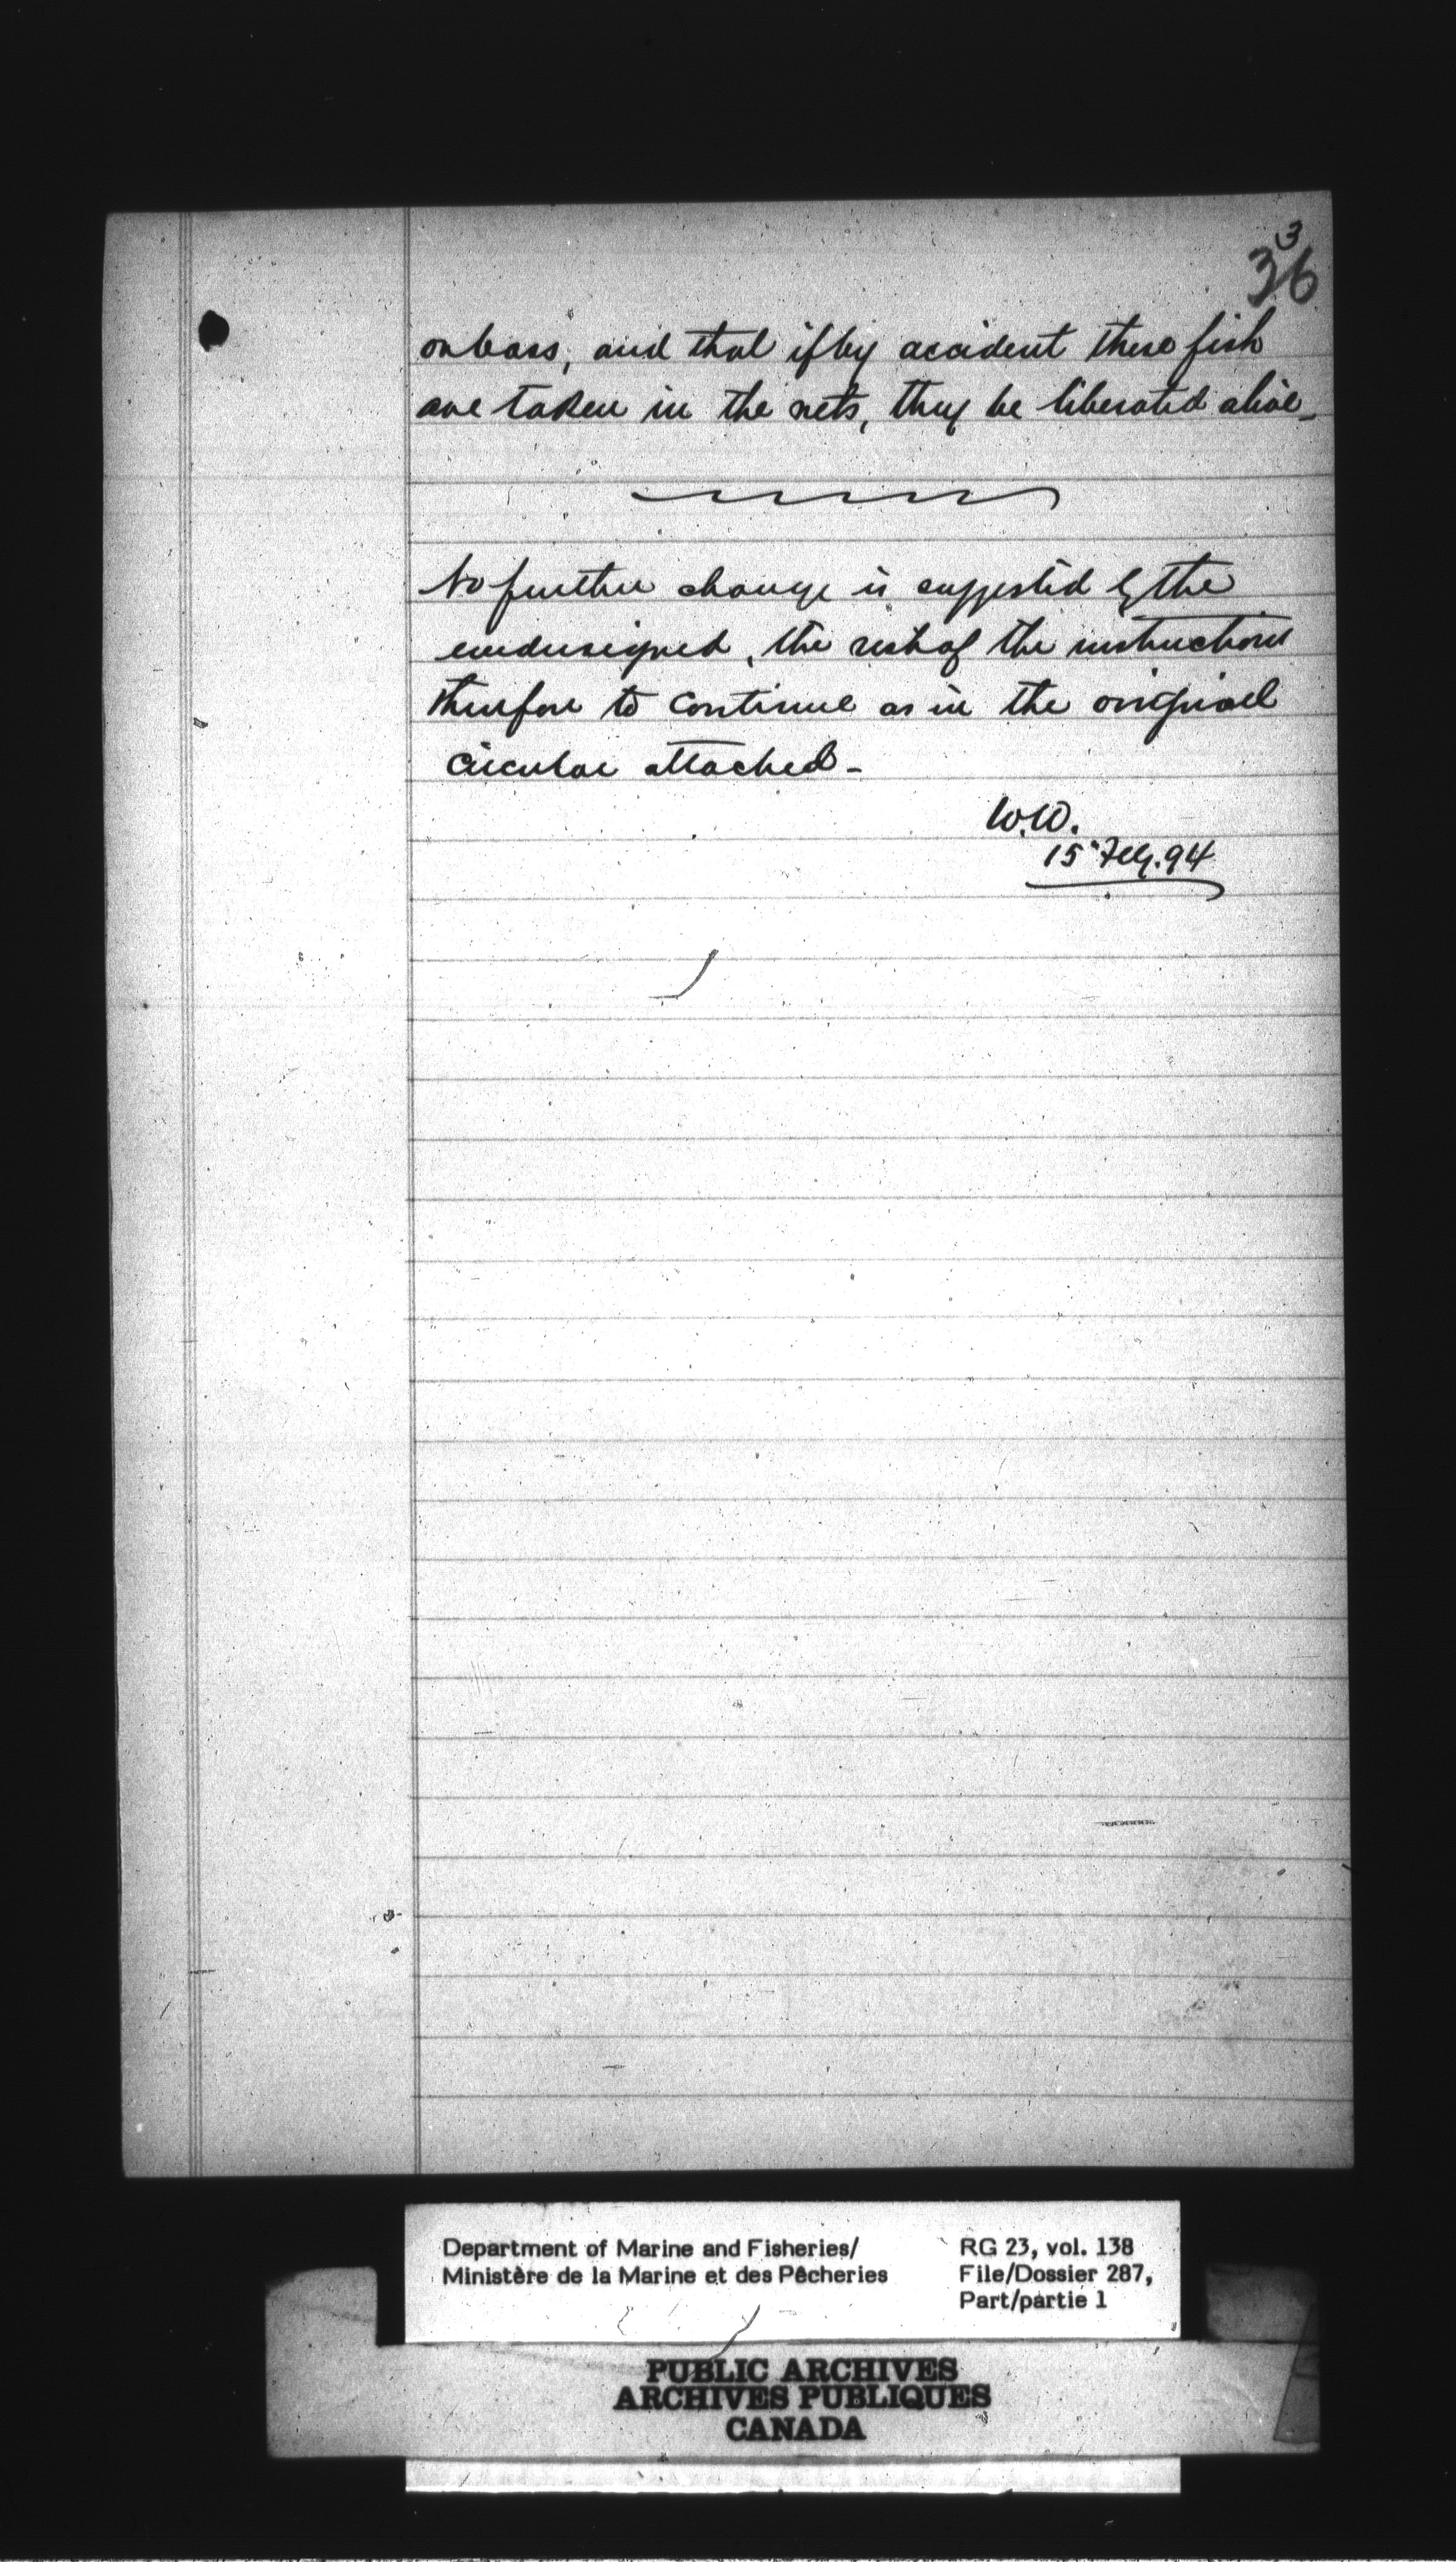 3
36
or bass, and that if by accident these fish
are taken in the nets, they be liberated alive_
No further change is suggested by the
undersigned, the rest of the instructions
therefore to continue as in the original
circular attached -
W.W.
15 Feby. 94
Department of Marine and Fisheries/
Ministère de la Marine et des Pêcheries
RG 23, vol. 138
File/Dossier 287,
Part/partie 1
PUBLIC ARCHIVES
ARCHIVES PUBLIQUES
CANADA